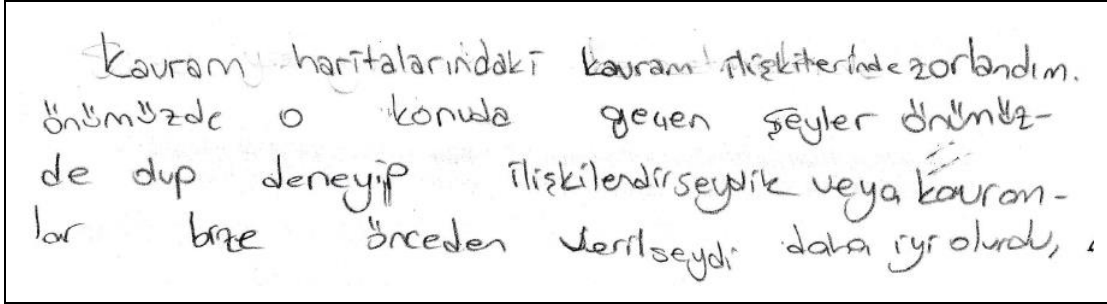 Kavram haritalarındaki kavram ilişkilerinde zorlandım.
önümüzde o konuda geçen şeyler önümüz-
de olup deneyip ilişkilendirseydik veya kavram-
lar bize önceden verilseydi daha iyi olurdu,